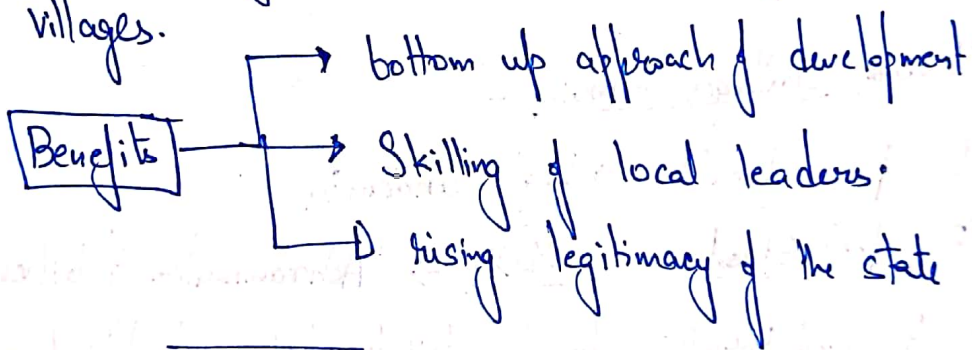 villages.
bottom up approach of development
Benefits
Skilling of local leaders.
rising legitimacy of the state